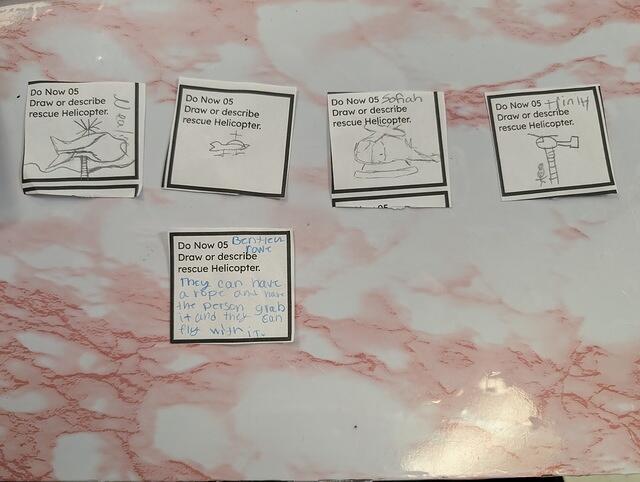 Do Now 05
Draw or describe
rescue Helicopter.
Do Now 05
Draw or describe
rescue Helicopter.
Do Now 05 Sofiah
Draw or describe
rescue Helicopter.
05
Do Now 05
Draw or describe
rescue Helicopter.
Do Now 05
Draw or describe
rescue Helicopter.
They can have
a rope and have
the person grab
it and they can
fly with it.